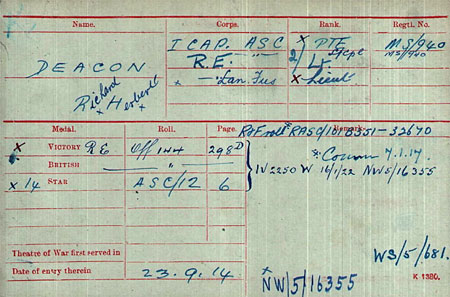 Name. Corps. Rank. Regtl. No.
I CAP. ASC × PTE MS/940
DEACON R.E. 2/Lt. A/Cpl MS/940
Richard Herbert × — Lan. Fus × Lieut
Medal. Roll. Page. Remarks.
R of F roll RASC/101B351-32670
× VICTORY RE Off 144 298D
BRITISH " " × Comm 7.1.17.
IV 2250 W 16/1/22 NW5/16355
× 14 STAR ASC/12 6
Theatre of War first served in
WS/5/681.
Date of entry therein 23.9.14
× NW/5/16355
K 1380.